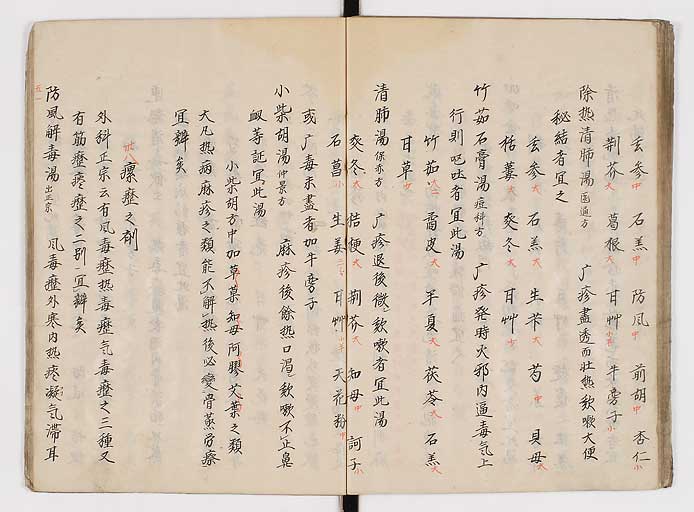 玄参中 石羔中 防風中 前胡中 杏仁小
荆芥大 葛根大 甘艸小 牛旁子小
除热清肺湯 医通方 疒疹盡透而壮热欬嗽大便
秘結者宜之
玄参大 石羔大 生芐大 芍中 貝母大
栝蔞大 麥冬大 甘艸
竹茹石膏湯 痘科方 疒疹発時火邪内逼毒気上
行則嘔吐者宜此湯
竹茹大 霜皮大 半夏大 茯苓大 石羔大
甘草
清肺湯 保赤方 疒疹退後微欬嗽者宜此湯
麥冬大 桔梗大 荆芥大 知母中 訶子小
石菖小 生姜 甘艸 天花粉中
或疒毒未盡者加牛旁子
小柴胡湯 仲景方 麻疹後餘热口渇欬嗽不正鼻
衂等証宜此湯
小柴胡方中加草菓知母阿膠艾葉之類
大凡热病麻疹之類能不解热後必變骨蒸労瘵
宜辨矣
廿八 瘰癧之剤
外科正宗云有風毒癧热毒癧气毒癧之三種又
有筋癧痰癧之二別宜辨矣
防風解毒湯 出正宗 風毒癧外寒内热痰凝气滞耳